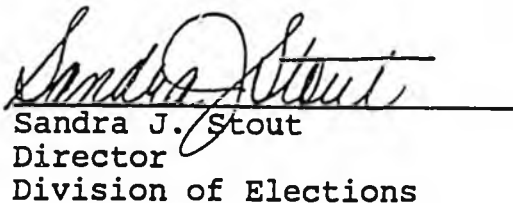 Sandra J. Stout
Sandra J. Stout
Director
Division of Elections